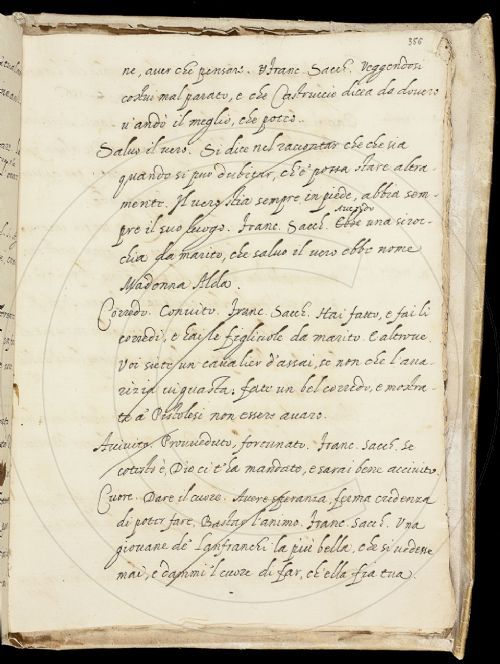 356
ne, aver che pensare. Franc. Sacch. Veggendosi
costui mal parato, e che Castruccio dicea da dovero
v'andò il meglio, che potèo.
Salvo il vero. Si dice nel raccontar che che sia
quando si può dubitar, ch'e' possa stare altra-
mente. Il vero stia sempre in piede, abbia sem-
pre il suo luogo. Franc. Sacch. Ebbe avendo una siroc-
chia da marito, che salvo il vero ebbe nome
Madonna Alda.
Corredo. Convito. Franc. Sacch. Hai fatto, e fai li
corredi, e hai le figliuole da marito. E altrove
Voi siete un cavalier d'assai, se non che l'ava-
rizia vi guasta; fate un bel corredo, e mostra-
te a' Pistolesi non essere avaro.
Accivito. Provveduto, fortunato. Franc. Sacch. Se
cotesto è, Dio ci t'ha mandato, e sarai bene accivito.
Cuore. Dare il cuore. Avere speranza, ferma credenza
di poter fare, Bastar l'animo. Franc. Sacch. Una
giovane de' Lanfranchi la più bella, che si vedesse
mai, e dammi 'l cuore di far, ch'ella fia tua.